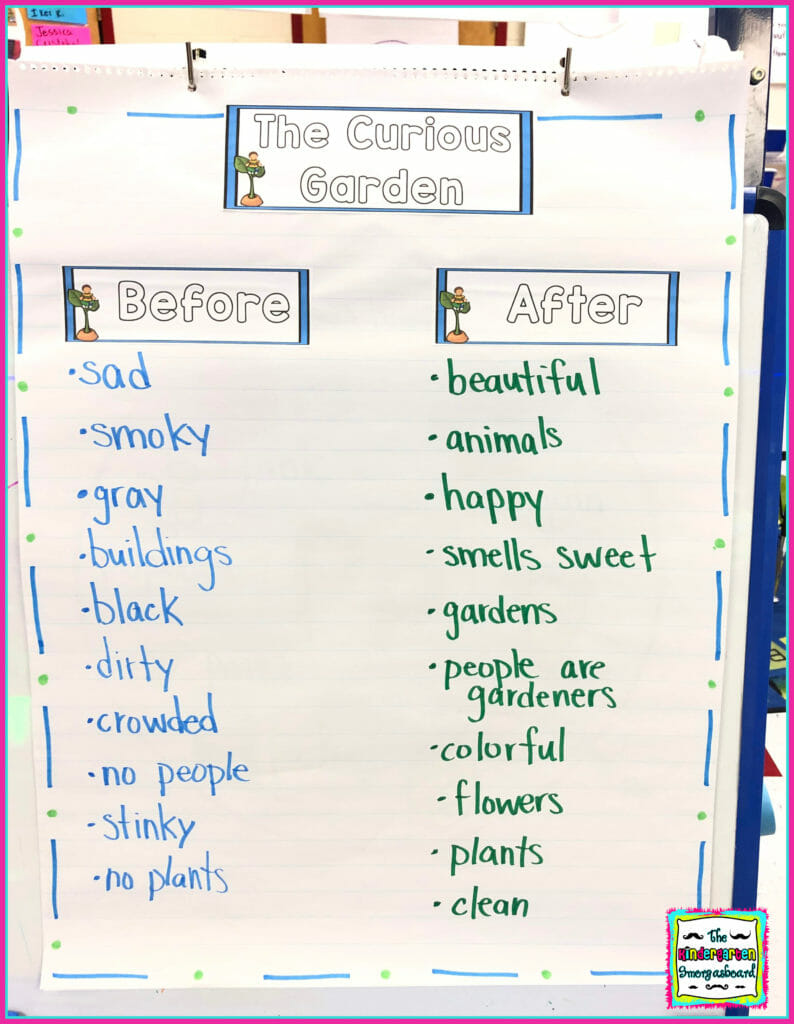 Iker R.
Jessica
The Curious
Garden
Before
•sad
•smoky
•gray
•buildings
•black
•dirty
•crowded
•no people
•stinky
•no plants
After
•beautiful
•animals
•happy
•smells sweet
•gardens
•people are
gardeners
•colorful
•flowers
•plants
•clean
The
Kindergarten
Smorgasboard